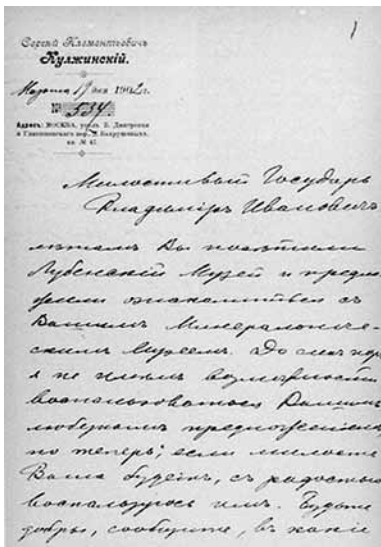 1
Сергѣй Клементьевичъ
Кулжинскій.
Марта 19 дня 1902 г.
№ 534.
Адресъ: МОСКВА, уголъ Б. Дмитровки
и Глинищевскаго пер., д. Бахрушиныхъ,
кв. № 47.
Милостивый Государь
Владиміръ Ивановичъ
лѣтомъ Вы посѣтили
Лубенскій Музей и предло
жили ознакомиться съ
Вашимъ Минералогиче-
скимъ Музеемъ. До сихъ поръ
я не имѣлъ возможности
воспользоваться Вашимъ
любезнымъ предложеніемъ,
но теперь, если милость
Ваша будетъ, съ радостью
воспользуюсь имъ. Будьте
добры, сообщите, въ какіе